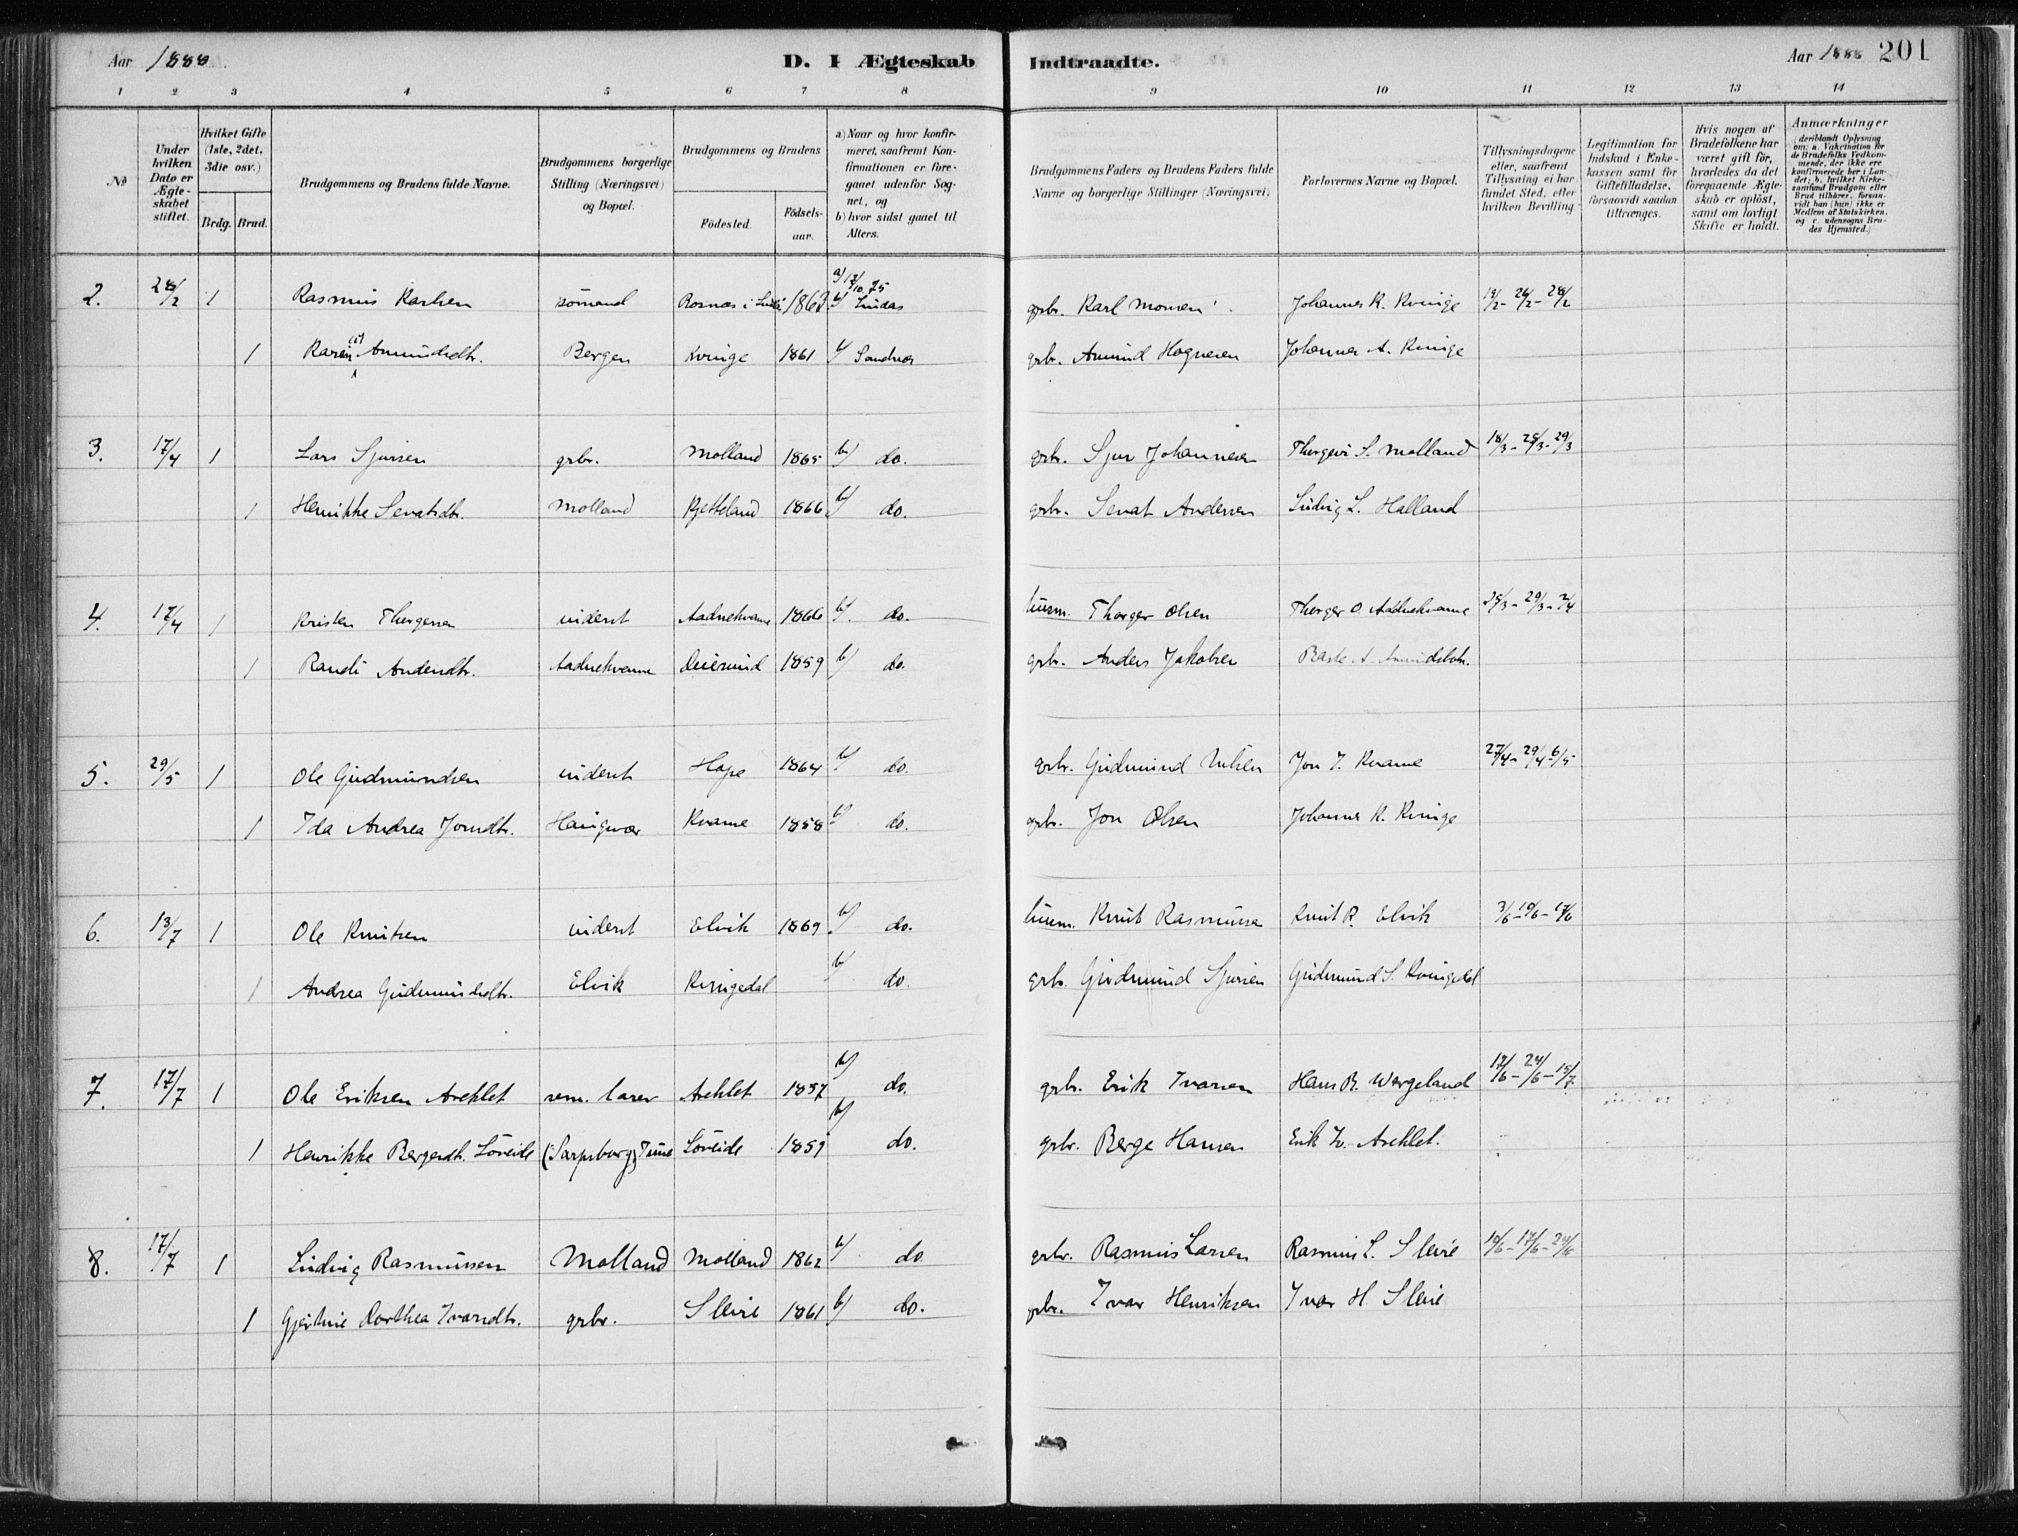 Aar 1888. D. I Ægteskab Indtraadte. Aar 1888 201
1 2 3 4 5 6 7 8 9 10 11 12 13 14
No
Under hvilken Dato er Ægteskabet stiftet.
Hvilket Gifte (1ste, 2det, 3die osv.)
Brdg. Brud.
Brudgommens og Brudens fulde Navne.
Brudgommens borgerlige Stilling (Næringsvei) og Bopæl.
Brudgommens og Brudens
Födested. Födselsaar.
a) Naar og hvor konfirmeret, saafremt Konfirmationen er foreganet udenfor Sognet, og
b) hvor sidst ganet til Alters.
Brudgommens Faders og Brudens Faders fulde Navne og borgerlige Stillinger (Næringsvei)
Forlovernes Navne og Bopæl.
Tillysningsdagene eller, saafremt Tillysning ei har fundet Sted, efter hvilken Bevilling
Legitimation for Indskud i Enkekassen samt for Giftetilladelse, forsaavidt saadan tiltrænges.
Hvis nogen af Brudefolkene har været gift för, hvorledes da det foregaaende Ægteskab er oplöst, samt om lovligt Skifte er holdt.
Anmærkninger
(deriblandt Oplysning om: a. Vakcination for de Brudefolks Vedkommende, der ikke ere konfirmerede her i Landet; b. hvilket Kirkesamfund Brudgom eller Brud tilhører, forsaavidt han (hun) ikke er Medlem af Statskirken, og c. udensogns Brudes Hjemsted.)
a/ 17/10 75
2. 28/2 1 Rasmus Karlsen sömand Rosnæs i 1863 b/ Lindaas gbr. Karl Monsen Johannes K. Kvinge 19/2 - 26/2 - 28/2
1 Karen Amundsdtr. Bergen Kvinge 1861 b/ Sandnes gbr. Amund Hagnesen Johannes A. Kvinge
3. 17/4 1 Lars Sjursen gbr. Molland 1865 b/ do. gbr. Sjur Johannesen S. Molland 18/3 - 25/3 - 29/3
1 Henrikke Senatsdtr. Molland Kjetteland 1866 b/ do. gbr. Senat Andersen Ludvig L. Halland
4. 17/4 1 Kristen Thorgersen inderst Aadnekvame 1866 b/ do. husm. Thorger Olsen Thorger O. Aadnekvame 25/3 - 29/3 - 2/4
1 Randi Andersdtr. Aadnekvame 1859 b/ do. gbr. Anders Jakobsen
5. 29/5 1 Ole Gudmundsen inderst Hope 1864 b/ do. gbr. Gudmund Jon J. Kvame 27/4 - 29/4 - 6/5
1 Ida Andrea Jonsdtr. Haugsvær Kvame 1858 b/ do. gbr. Jon Olsen Johannes K. Kvinge
6. 13/7 1 Ole Knutsen inderst Elvik 1869 b/ do. husm. Knut Rasmussen Knut R. Elvik 3/6 - 10/6 - 17/6
1 Andrea Gudmundsdtr. Elvik Kvingedal b/ do. gbr. Gudmund Sjursen Gudmund S. Kvingedal
7. 17/7 1 Ole Eriksen Areklet sem. lærer Areklet 1857 b/ do. gbr. Erik Ivarsen Hans B. Wergeland 17/6 - 24/6 - 15/7
1 Henrikke Bergesdtr. Söreide (Sarpsborg) Tune Söreide 1859 b/ do. gbr. Berge Hansen Erik Iv. Areklet.
8. 17/7 1 Ludvig Rasmussen Molland Molland 1862 b/ do. gbr. Rasmus Larsen Rasmus L. Sleire 10/6 - 17/6 - 24/6
1 Gjertine Dorthea Ivarsdtr. gbr. Sleire 1861 b/ do. gbr. Ivar Henriksen Ivar H. Sleire